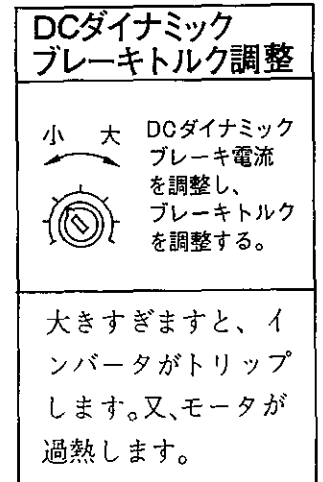 DCダイナミック
ブレーキトルク調整
小 大
DCダイナミック
ブレーキ電流
を調整し、
ブレーキトルク
を調整する。
大きすぎますと、イ
ンバータがトリップ
します。又、モータが
過熱します。